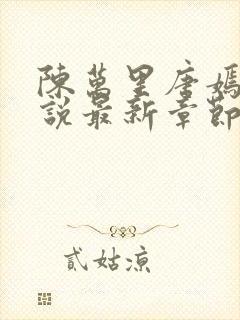 陳萬里唐嫣
說最新章節
貳姑涼